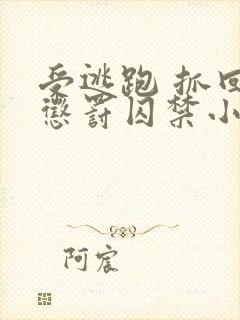 受逃跑 抓回
惩罚囚禁小
阿宸